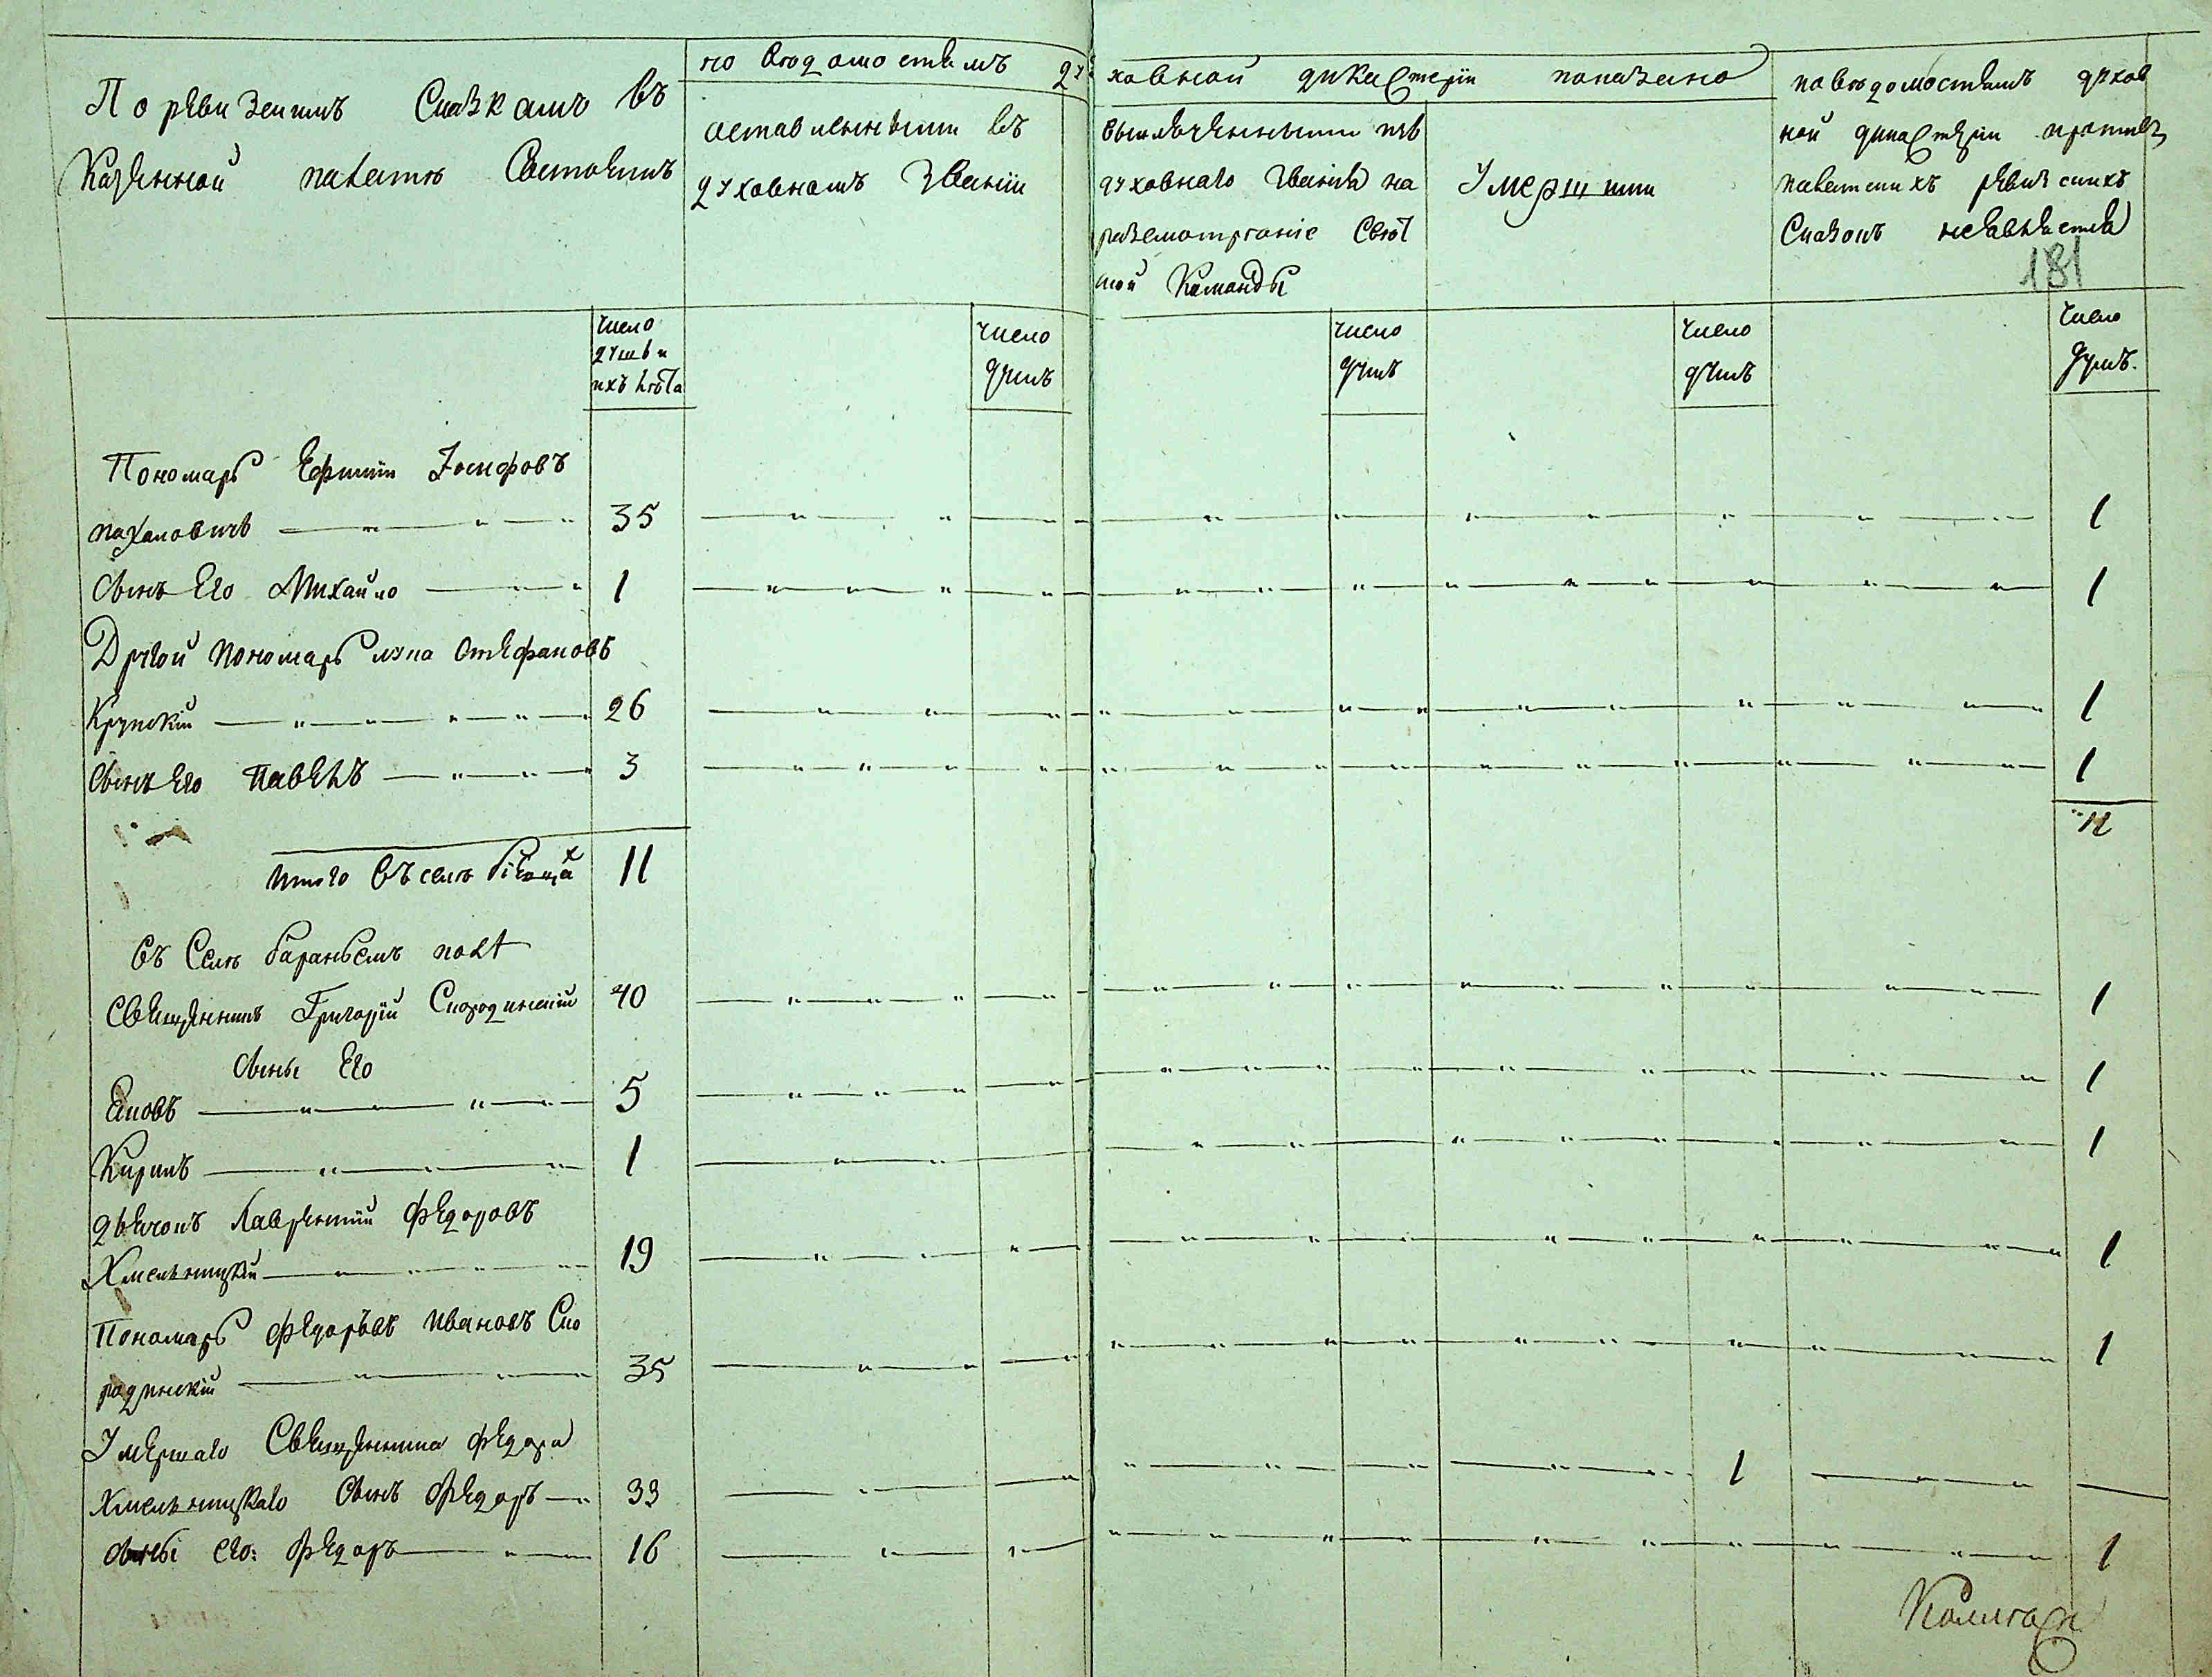 По ревизскимъ Сказкамъ въ
Казенной палатѣ Состоитъ
по вѣдомостямъ ду
ховной дикастеріи показано
оставленными въ
духовномъ званіи
выключенными изъ
духовнаго званія на
разсмотреніе Свѣт
ской Команды
Умершими
по вѣдомостямъ духов
ной дикастеріи противъ
палатскихъ ревизскихъ
Сказокъ неявляется
181
число
душъ и
ихъ лѣта
число
душъ
число
душъ
число
душъ
число
душъ.
Пономарь Ефимій Іосифовъ
35 1
Сынъ Его Михайло 1 1
Другой пономарь лука Стефановъ
Крупскій 26 1
Сынъ Его Павелъ 3 1
11
Итого въ селѣ 11
Въ Селѣ бараньемъ полѣ
Священникъ Григорій Скородинскій 40 1
Сыны Его
Яковъ 5 1
Кирилъ 1 1
дьячокъ Лаврентій Федоровъ
Хмельницкій 19 1
Пономарь Ѳедоровъ Ивановъ Ско
родинскій 35 1
Умершаго Священника Федора
Хмельницкаго Сынъ Федоръ 33 1
Сыны его: Федоръ 16 1